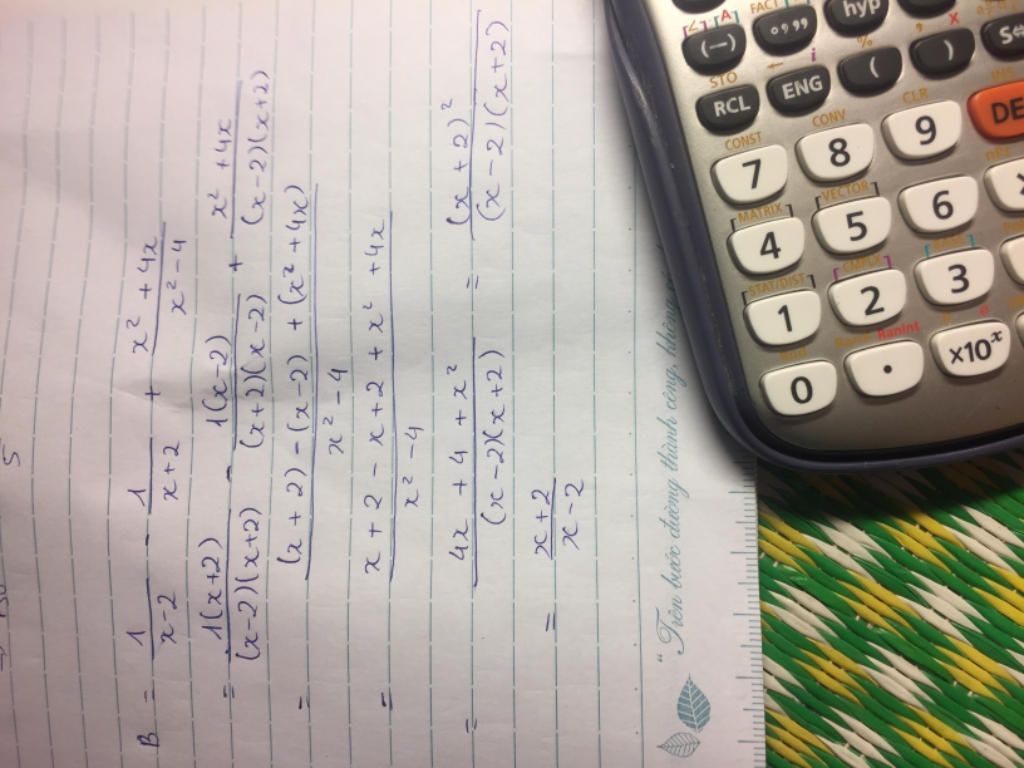 5
B = 1/(x-2) - 1/(x+2) + (x² + 4x)/(x² - 4)
= 1(x+2)/((x-2)(x+2)) - 1(x-2)/((x+2)(x-2)) + (x² + 4x)/((x-2)(x+2))
= ((x+2) - (x-2) + (x² + 4x))/(x² - 4)
= (x + 2 - x + 2 + x² + 4x)/(x² - 4)
= (4x + 4 + x²)/((x-2)(x+2)) = (x + 2)²/((x-2)(x+2))
= (x+2)/(x-2)
"Trên bước đường thành công, không
[∠] [A] FACT
(−) °’” hyp
STO ← i % , X
RCL ENG ( ) S⇔
CONST CONV CLR INS
7 8 9 DE
[MATRIX] [VECTOR] nPr
4 5 6
[STAT/DIST] [CMPLX] [BASE]
1 2 3
Rnd Ran# RanInt π e
0 • ×10ˣ